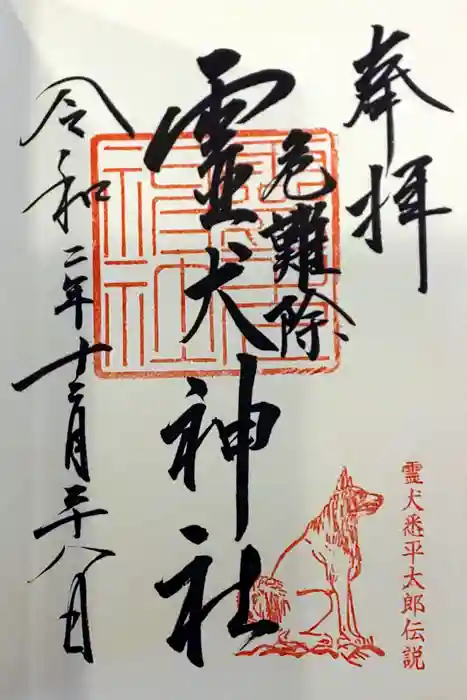 奉拝
危難除
霊犬神社
令和二年十二月二十八日
霊犬悉平太郎伝説